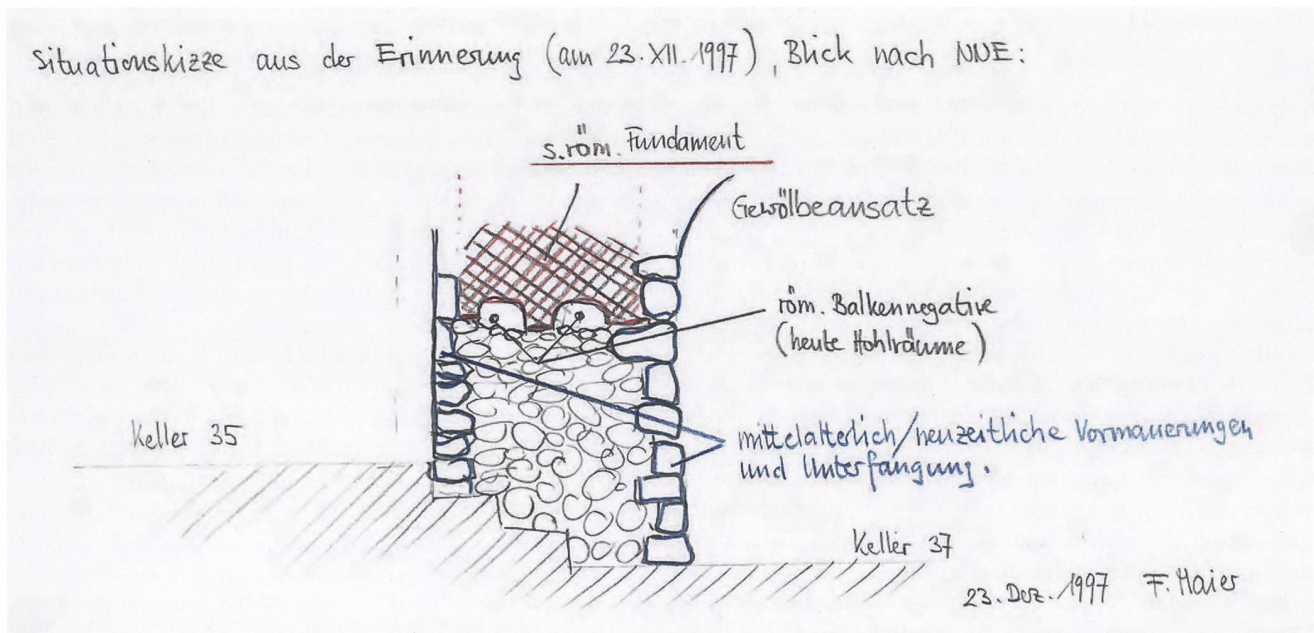 Situationskizze aus der Erinnerung (am 23.XII.1997), Blick nach NNE:
s.röm. Fundament
Gewölbeansatz
röm. Balkennegative
(heute Hohlräume)
Keller 35
mittelalterlich/neuzeitliche Vormauerungen
und Unterfangung.
Keller 37
23. Dez. 1997 F. Maier